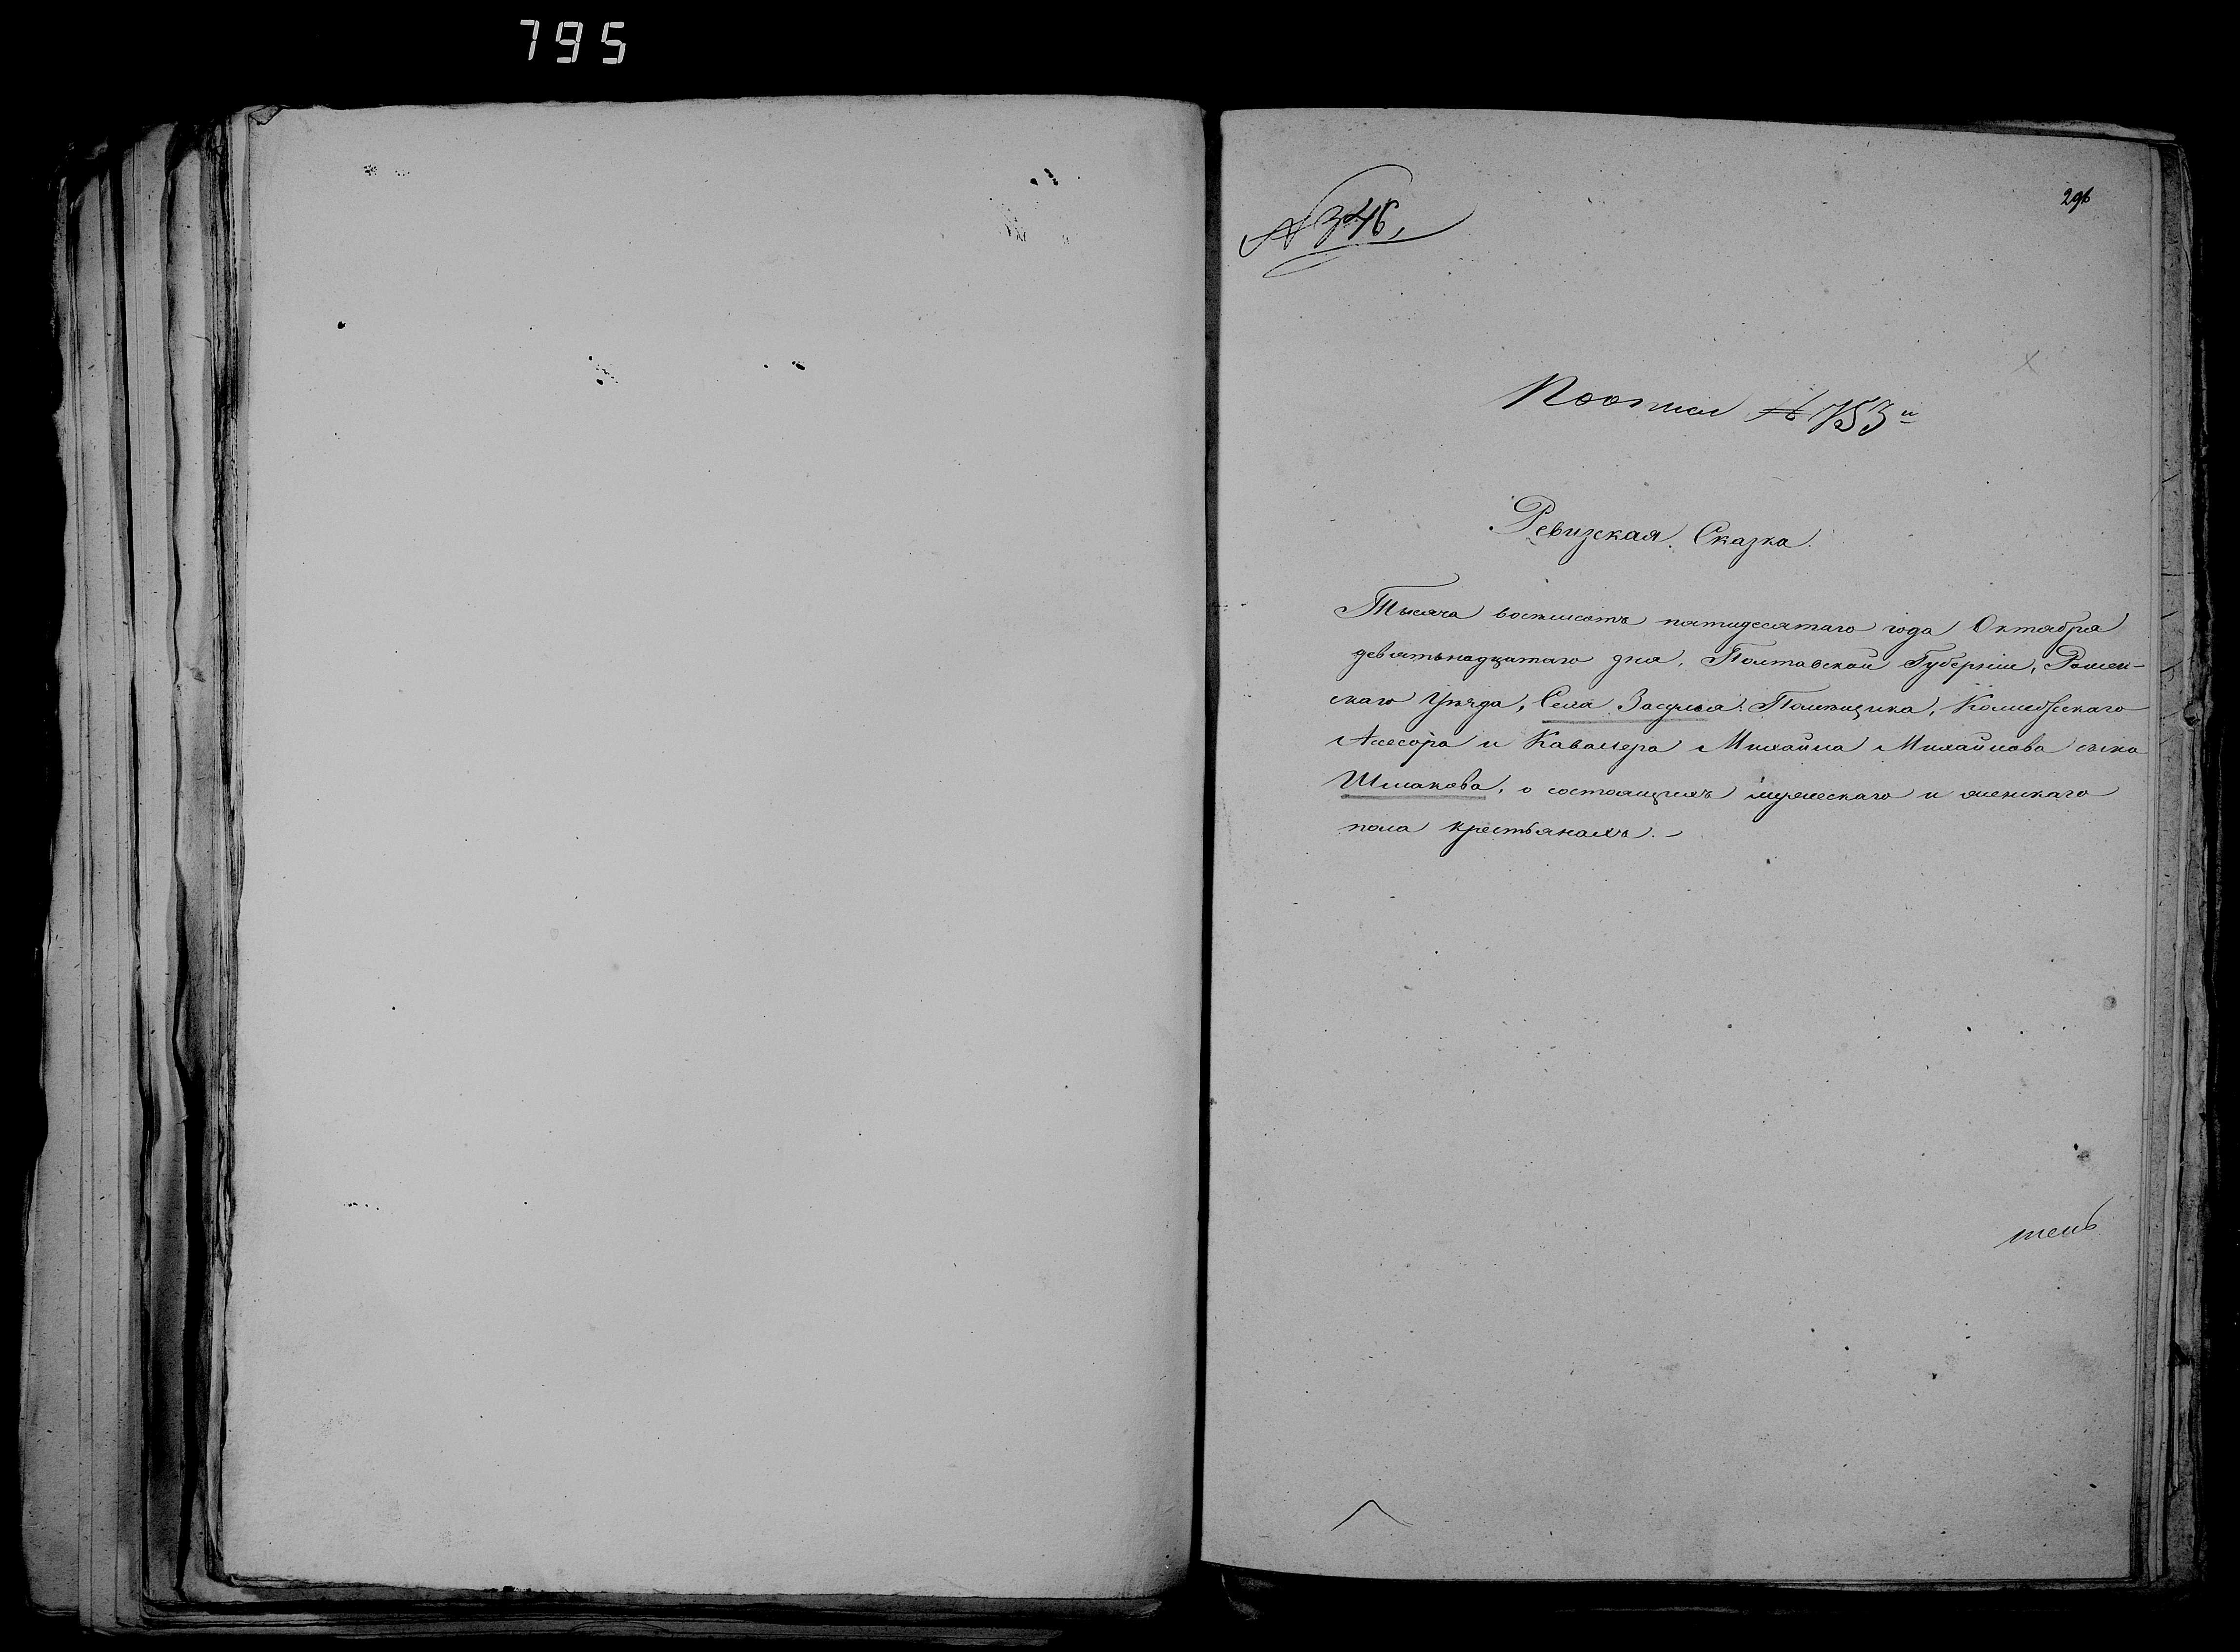 795
296
№ 346,
По описи № 753й
Ревизская Сказка.
Тысяча восемьсотъ пятидесятаго года Октября
девятьнадцатаго дня, Полтавской Губерніи, Ромен-
скаго Уѣзда, Села Засулья Помѣщика, Коллежскаго
Асесора и Кавалера Михайла Михайлова сына
Шлякова, о состоящихъ мужескаго и женскаго
пола крестьянахъ.-